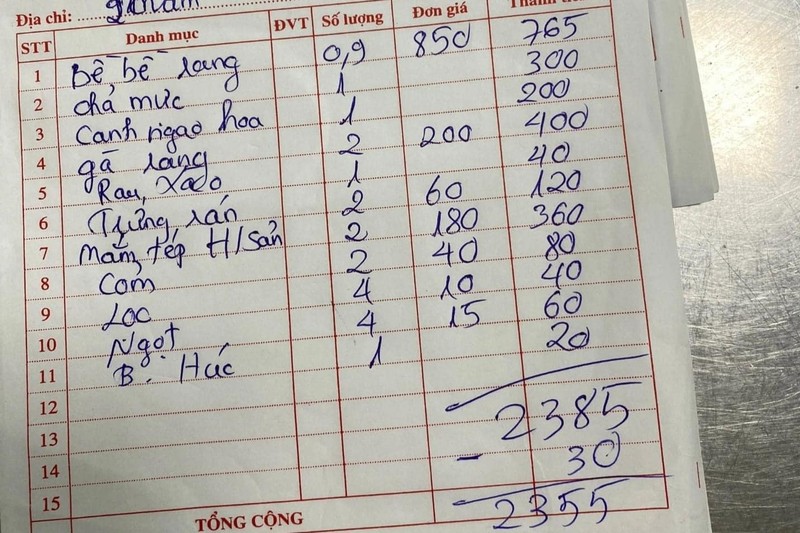 Địa chỉ:
STT Danh mục ĐVT Số lượng Đơn giá Thành tiền
1 Bề bề rang 0,9 850 765
2 chả mực 1 300
3 Canh ngao hoa 1 200
4 gà rang 2 200 400
5 Rau xào 1 40
6 Trứng rán 2 60 120
7 Mắm tép H/Sản 2 180 360
8 Cơm 2 40 80
9 Lọc 4 10 40
10 Ngọt 4 15 60
11 B. Húc 1 20
12 2385
13
14 - 30
15 2355
TỔNG CỘNG